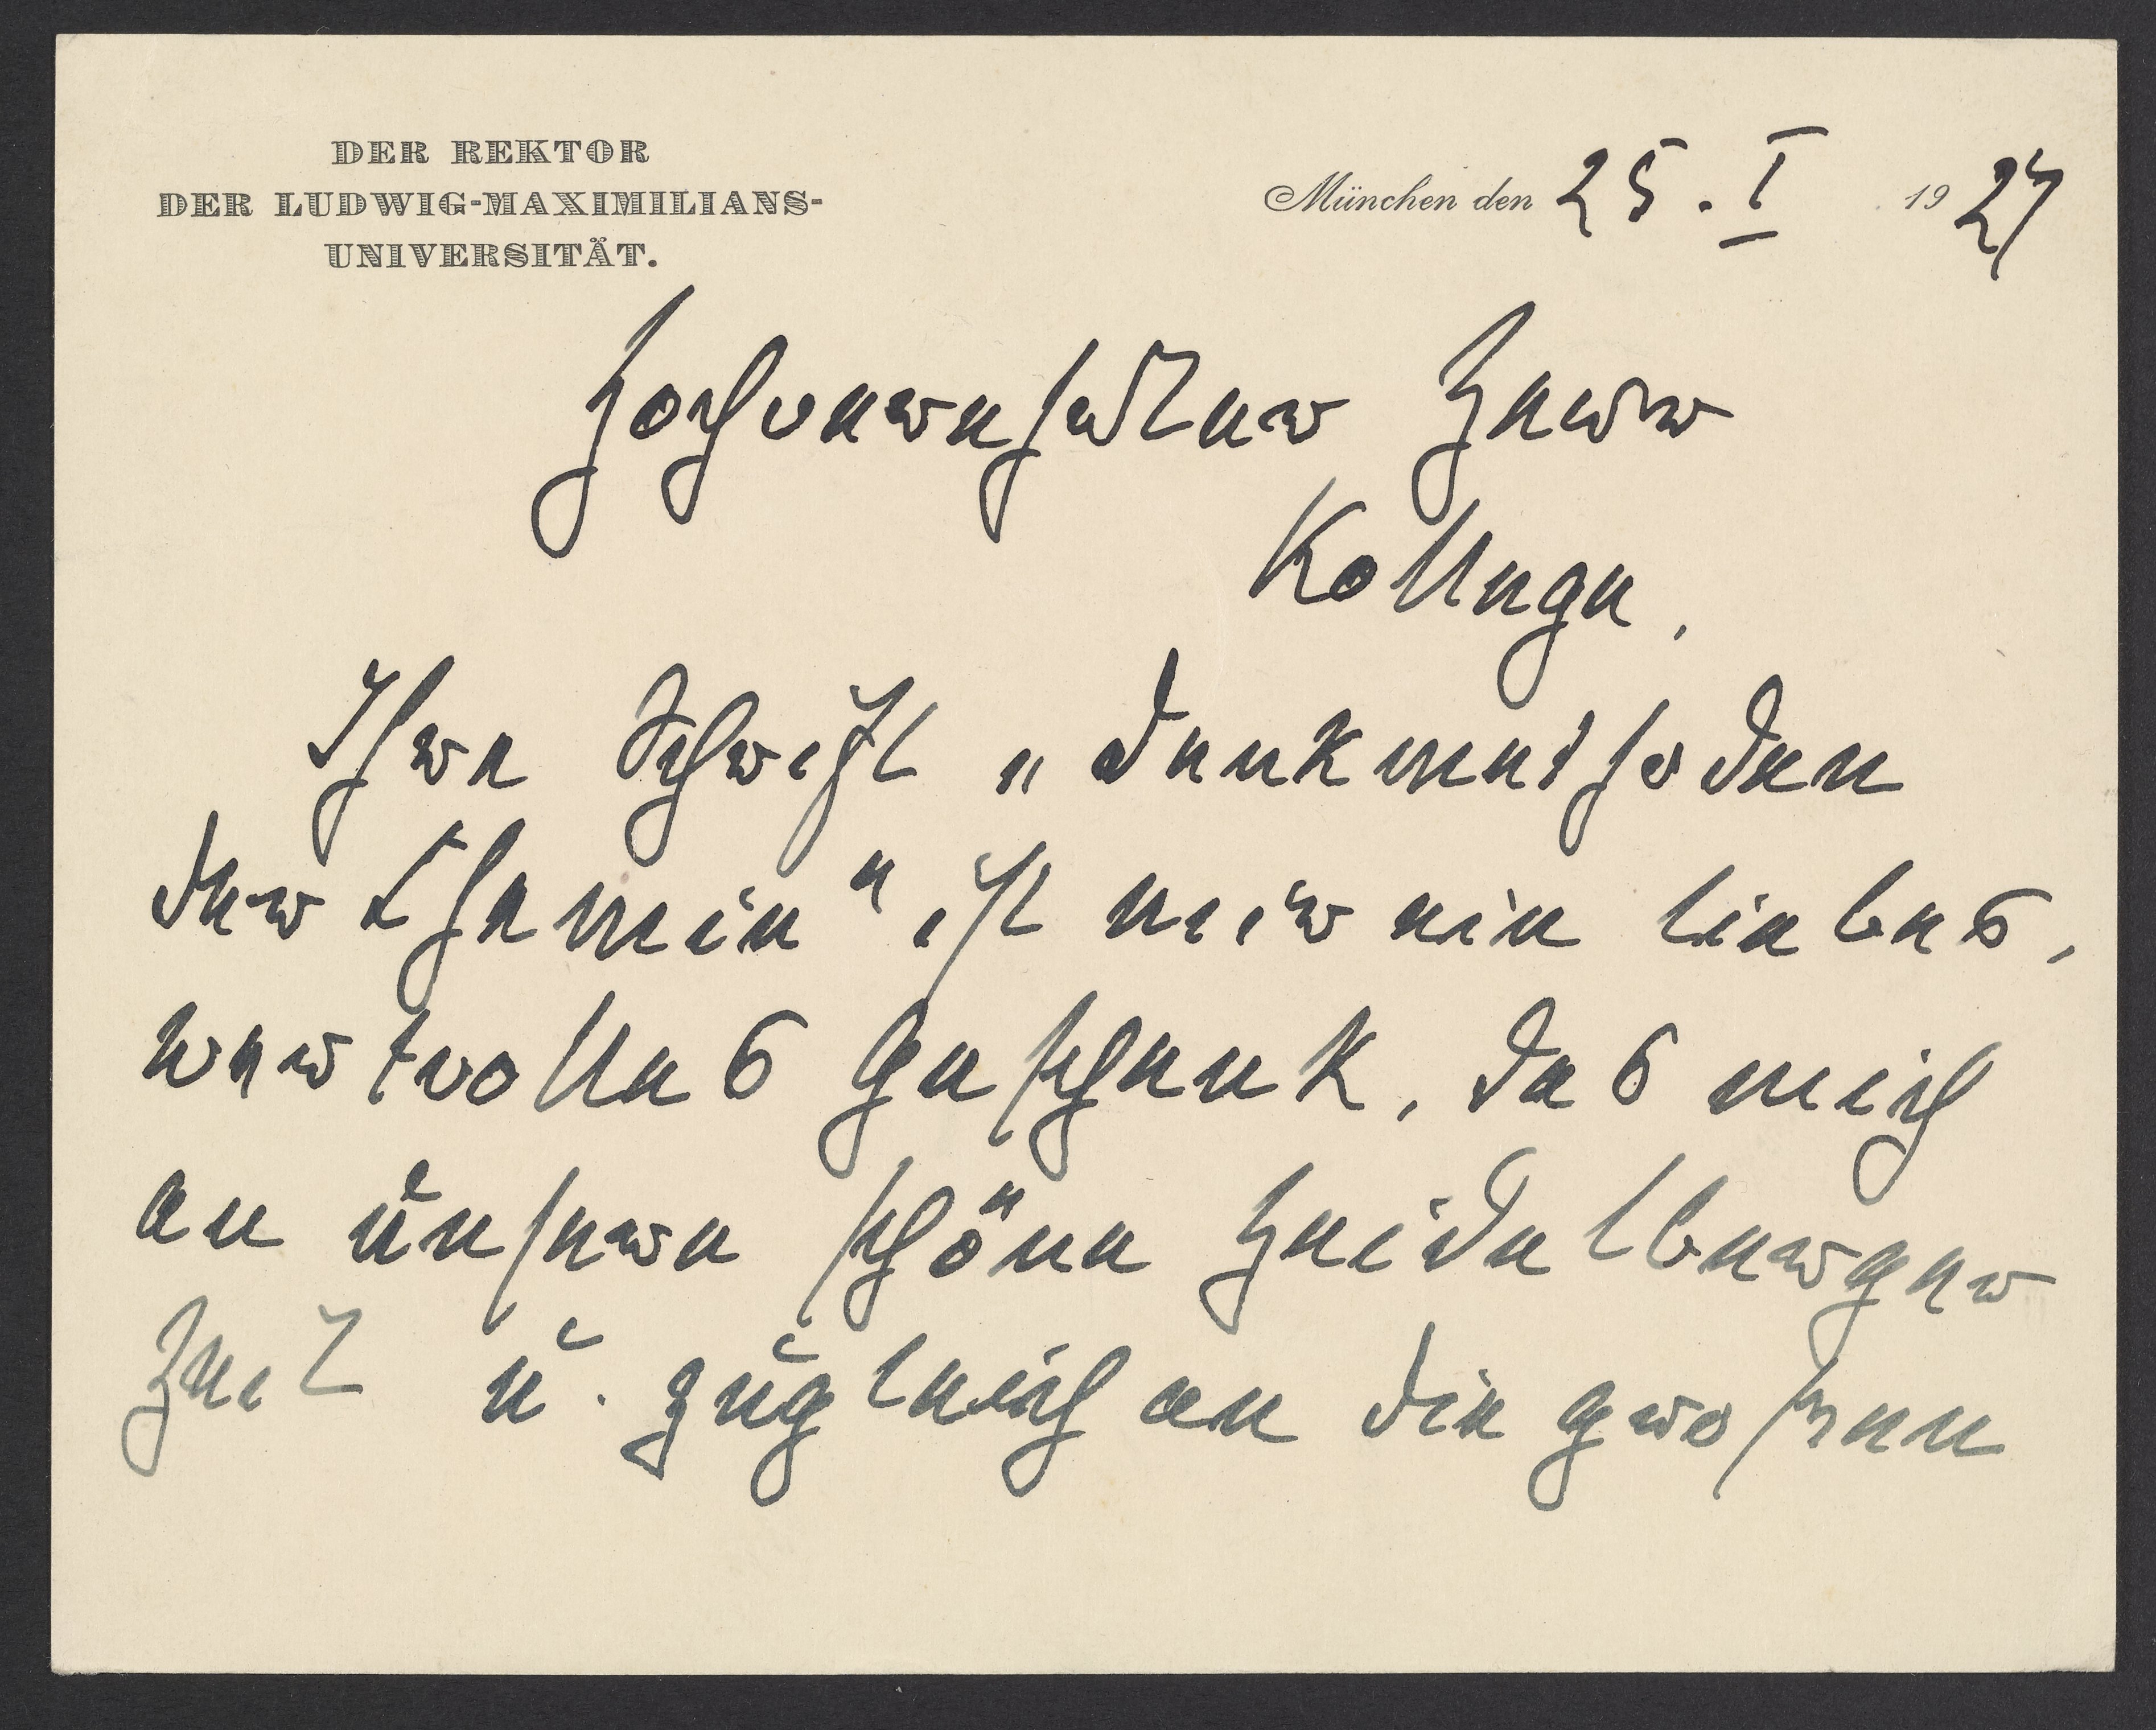 DER REKTOR
DER LUDWIG-MAXIMILIANS-
UNIVERSITÄT.
München den 25. I 1927
Hochverehrter Herr
Kollege,
Ihre Schrift „Denkmethoden
der Chemie" ist mir ein liebes,
wertvolles Geschenk, das mich
an unsere schöne Heidelberger
Zeit u. zugleich an die grossen